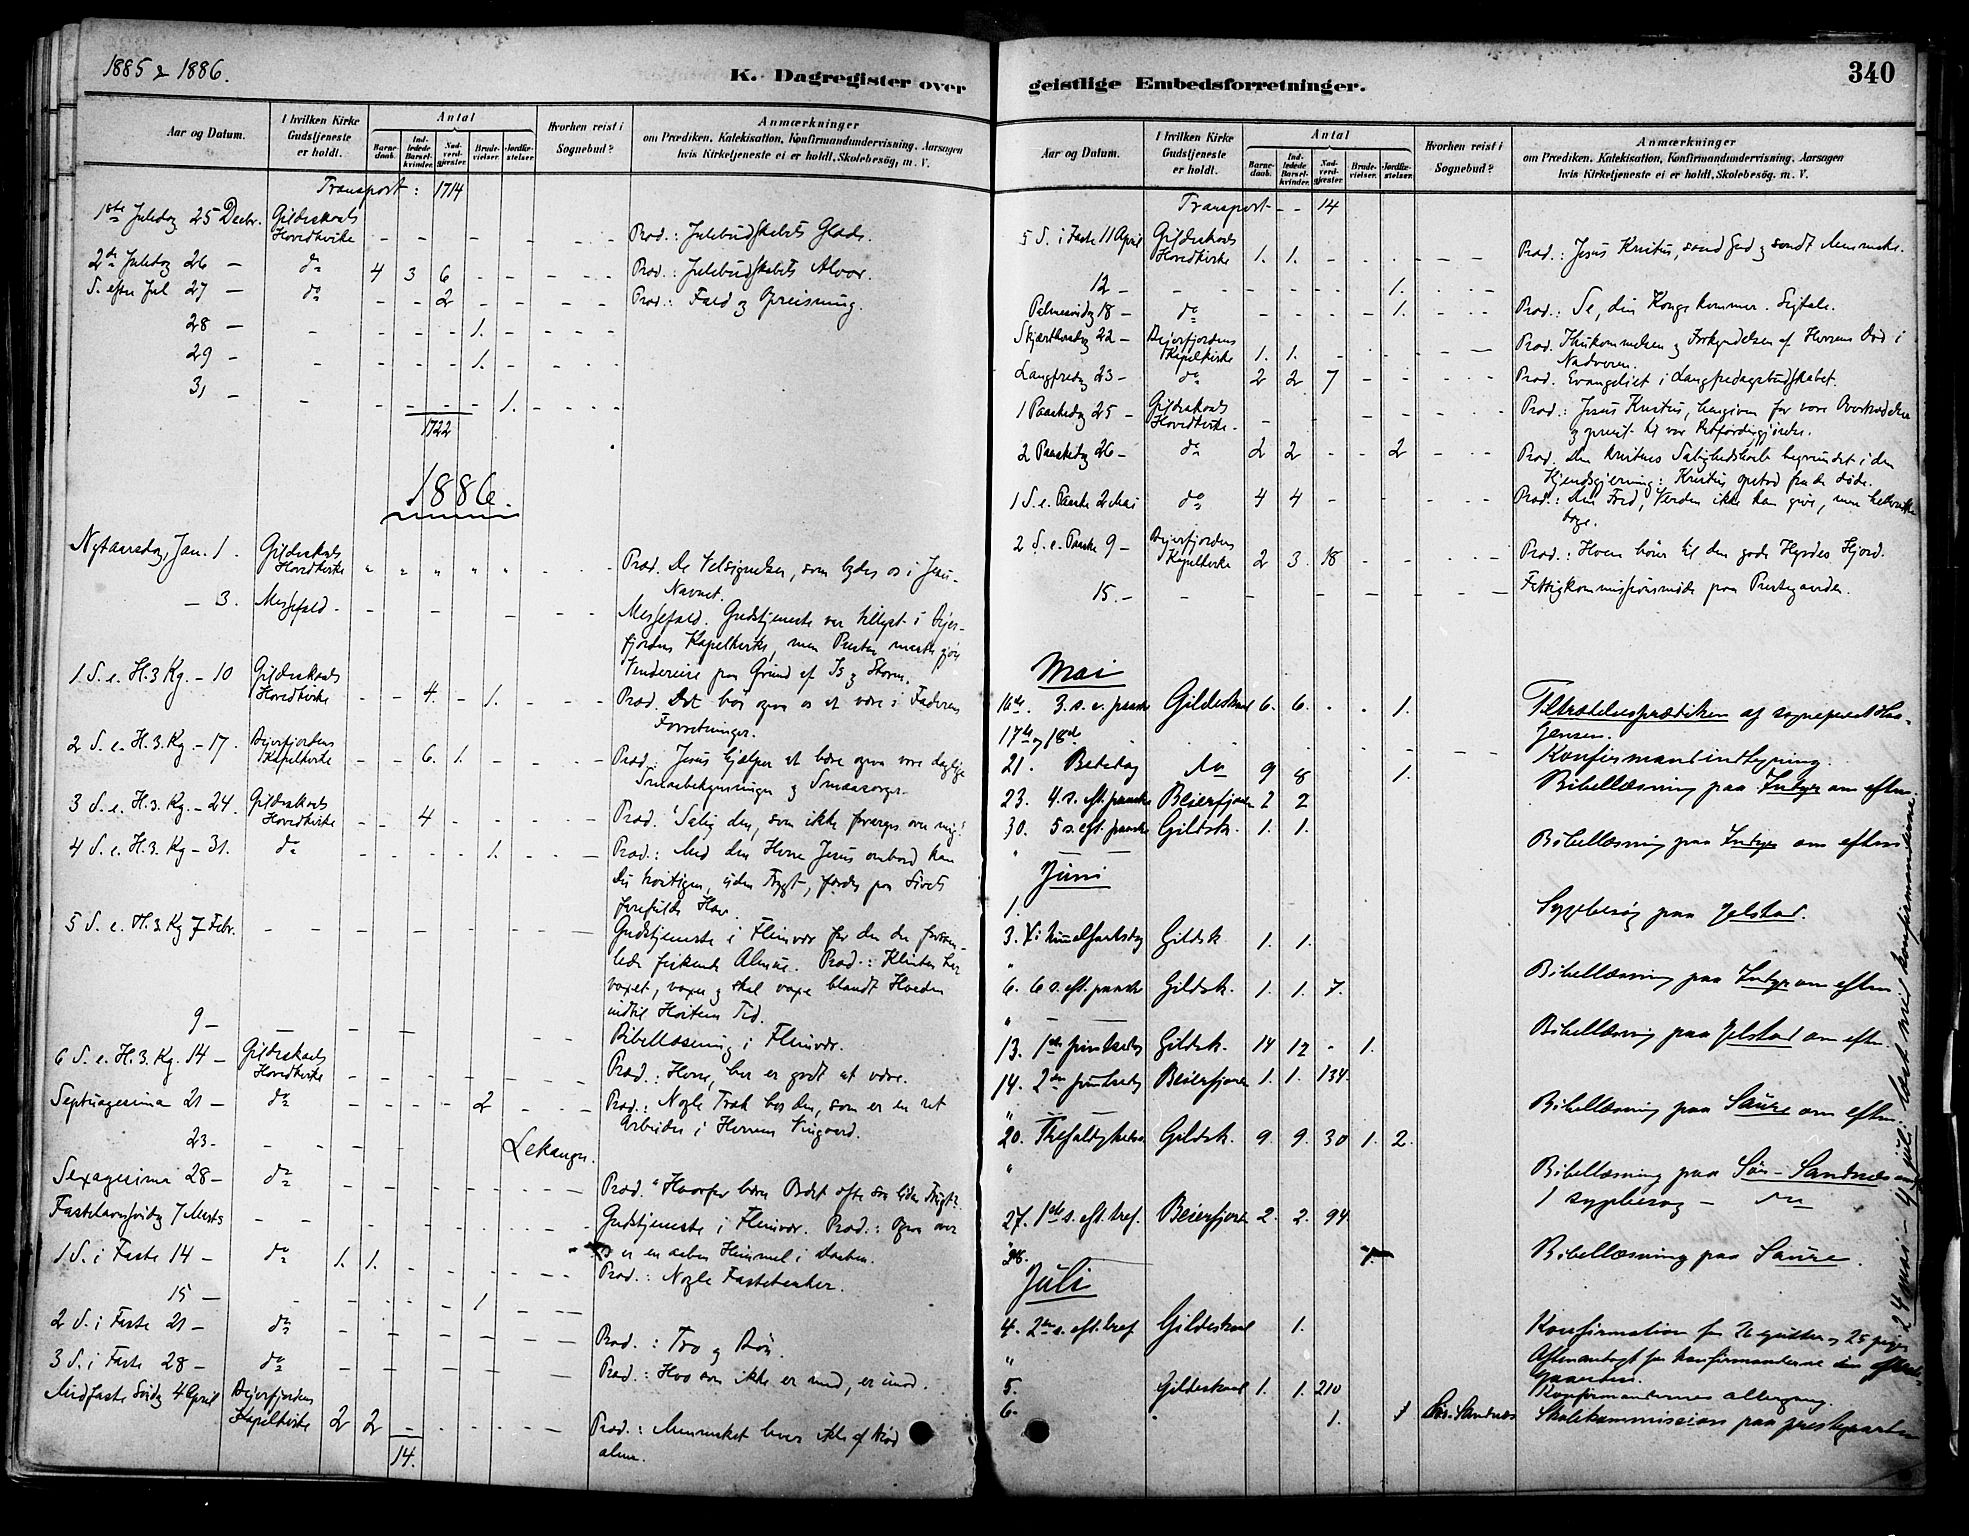 1885 & 1886.
K. Dagregister over
Aar og Datum.
I hvilken Kirke Gudstjeneste er holdt.
Antal
Barnedaab.
Indledede Barselkvinder.
Nadverdgjæster.
Brudevielser.
Jordfæstelser.
Hvorhen reist i Sognebud?
Anmærkninger
om Prædiken, Katekisation, Konfirmandundervisning, Aarsagen
hvis Kirketjeneste ei er holdt, Skolebesög, m. V.
Transport: 1714
1ste Juledag 25 Decbr. Gildeskaals Hovedkirke - - - - - - Præd.: Julebudskabets Glæde.
2den Juledag 26 - do 4 3 6 - - - Præd.: Julebudskabets Alvor.
S. efter Jul 27 - do - - 2 - - - Præd.: Fald og Opreisning.
28 - - - - - 1. - -
29 - - - - - 1. - -
31 - - - - - - 1. -
1722
1886.
Nytaarsdag, Jan. 1. Gildeskaals Hovedkirke " " " " " - Præd. De Velsignelser, som bydes os i Jesu
Navnet.
- 3. Messefald. - - - - - Messefald. Gudstjeneste var tillyst i Beier-
fjordens Kapelkirke, men Presten maatte gjøre
Vendereise paa Grund af Is og Storm.
1 S. e. H. 3 Kg. - 10 Gildeskaals Hovedkirke - - 4. - 1. - Præd. Det bør os at være i Faderens
Forretninger.
2 S. e. H. 3. Kg. - 17. Beierfjordens Kapelkirke - - 6. 1. - - Præd.: Jesus hjælper at bære vore daglige
Smaabekymringer og Smaasorger.
3 S. e. H. 3. Kg. - 24. Gildeskaals Hovedkirke - - 4 - - - Præd. "Salig den, som ikke forarges over mig!
4 S. e. H. 3. Kg - 31. do - - - - 1. - Præd.: Med den Herre Jesus ombord kan
du uden Frygt, færdes paa Livets
Hav.
5 S. e. H. 3. Kg 7 Febr. - - - - - - Gudstjeneste i Fleinvær for den der
fiskende Almue. Præd.: Klinten har
voxet, voxer og skal voxe blandt Hveden
indtil Høstens Tid.
9 - - - - - - Bibellæsning i Fleinvær.
6 S. e. H. 3. Kg. 14 - Gildeskaals Hovedkirke - - - - - - Præd.: Herre, her er godt at være.
Septuagesima 21 - do - - - - 2 - Præd.: Nogle Træk hos den, som er en ret
Arbeider i Herrens Vingaard.
23 - - - - Lekanger.
Sexagesima 28 - do - - - - - - Præd. "Hvorfor bærer Ordet ofte saa liden Frugt?
Fastelavnssøndag 7 Marts - - - - - - Gudstjeneste i Fleinvær. Præd.: over
os er en aaben Himmel i Daaben.
1 S. i Faste 14 - do 1. 1. - - - - Præd.: Nogle Fastetanker.
15 - - - - - 1 - -
2 S. i Faste 21 - do - - - - - - Præd.: Tro og Bøn.
3 S. i Faste 28 - do - - - - - - Præd.: Hvo som ikke er med, er imod.
Midfaste Søndag 4 April Beierfjordens Kapelkirke 2 2 - - - - Præd.: Mennesket lever ikke af Brød
alene.
14.
340
geistlige Embedsforretninger.
Aar og Datum.
I hvilken Kirke Gudstjeneste er holdt.
Antal
Barnedaab.
Indledede Barselkvinder.
Nadverdgjæster.
Brudevielser.
Jordfæstelser.
Hvorhen reist i Sognebud?
Anmærkninger
om Prædiken, Katekisation, Konfirmandundervisning, Aarsagen
hvis Kirketjeneste ei er holdt, Skolebesög, m. V.
Transport - - 14
5 S. i Faste 11 April Gildeskaals Hovedkirke 1. 1. - - - - Præd.: Jesus Kristus, sand Gud og sandt Menneske.
12 - - - - - - 1. -
Palmesøndag 18 - do - - - - 1. - Præd.: Se, din Konge kommer.
Skjærthorsdag 22 - Beierfjordens Kapelkirke 1. 1. - - - - Præd. Ihukommelsen og Forkyndelsen af Herrens Død i
Nadveren.
Langfredag 23 - do 2 2 7 - - - Præd. Evangeliet i Langfredagsbudskabet.
1 Paaskedag 25 - Gildeskaals Hovedkirke. - - - - - - Præd.: Jesus Kristus, hengiven for vore Overtrædelser
og opreist til vor Retfærdiggjørelse.
2 Paaskedag 26 - do 2 2 - - 2 - Præd. Den kristnes Salighedshaab begrundet i den
Kjendsgjerning: Kristus opstod fra de døde.
1 S. e. Paaske 2 Mai do 4 4 - - - - Præd.: Den Fred, Verden ikke kan give, men heller ikke
tage.
2 S. e. Paaske 9 - Beierfjordens Kapelkirke 2 3 18 - - - Præd.: Hvem hører til den gode Hyrdes Hjord.
15. - - - - - - - - Fattigkommissionsmøde paa Prestegaarden.
Mai
16de. 3. s. e. paaske Gildeskaal 6. 6. . . 1. Tiltrædelsesprædiken af sogneprest
Jensen.
17de og 18de Konfirmandindtegning.
21. Bededag do 9 8 1. Bibellæsning paa Indyr om eften.
23. 4. s. eft. paaske Beierfjorden 2 2
30. 5 s. eft. paaske Gildsk. 1. 1.
" Bibellæsning paa Indyr om eften
Juni
1. Sygebesøg paa Jelstad.
3. Kr. himmelfartsdag Gildsk. 1. 1.
" Bibellæsning paa Indyr om eften.
6. 6 s. eft. paaske Gildsk. 1. 1. 7.
" Bibellæsning paa Jelstad om eften.
13. 1ste pintsedag Gildsk. 14 12 - 1.
14. 2den pintsedag Beierfjorden 1. 1. 134.
" Bibellæsning paa Saure om eften
20. Trefoldigheds. Gildsk. 9. 9. 30 1. 2.
" Bibellæsning paa Sør-Sandnæs
1 sygebesøg - do
27. 1ste s. eft. tref. Beierfjorden 2. 2. 94.
28. 1. Bibellæsning paa Saure.
Juli
4. 2den s. eft. tref. Gildeskaal 1. Konfirmation for 26 gutter og 25 piger
" Aftensangt for konfirmanderne
5. Gildeskaal 1. 1. 210 Konfirmandernes altergang.
6. 1. 1 Sør-Sandnæs Skolekommission paa prestegaarden
24 mai - 4 juli: læst med konfirmanderne